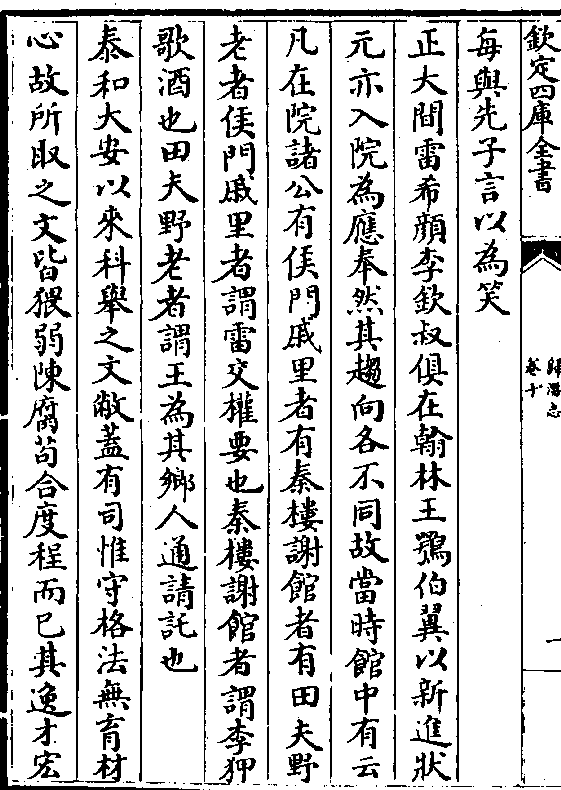 欽定四庫全書
歸潛志
卷十
一
每與先子言以為笑
正大間雷希顔李欽叔俱在翰林王鶚伯翼以新進狀
元亦入院為應奉然其趨向各不同故當時館中有云
凡在院諸公有侯門戚里者有秦樓謝館者有田夫野
老者侯門戚里者謂雷交權要也秦樓謝館者謂李狎
歌酒也田夫野老者謂王為其鄉人通請託也
泰和大安以來科舉之文敝蓋有司惟守格法無育材
心故所取之文皆猥弱陳腐苟合度程而已其逸才宏